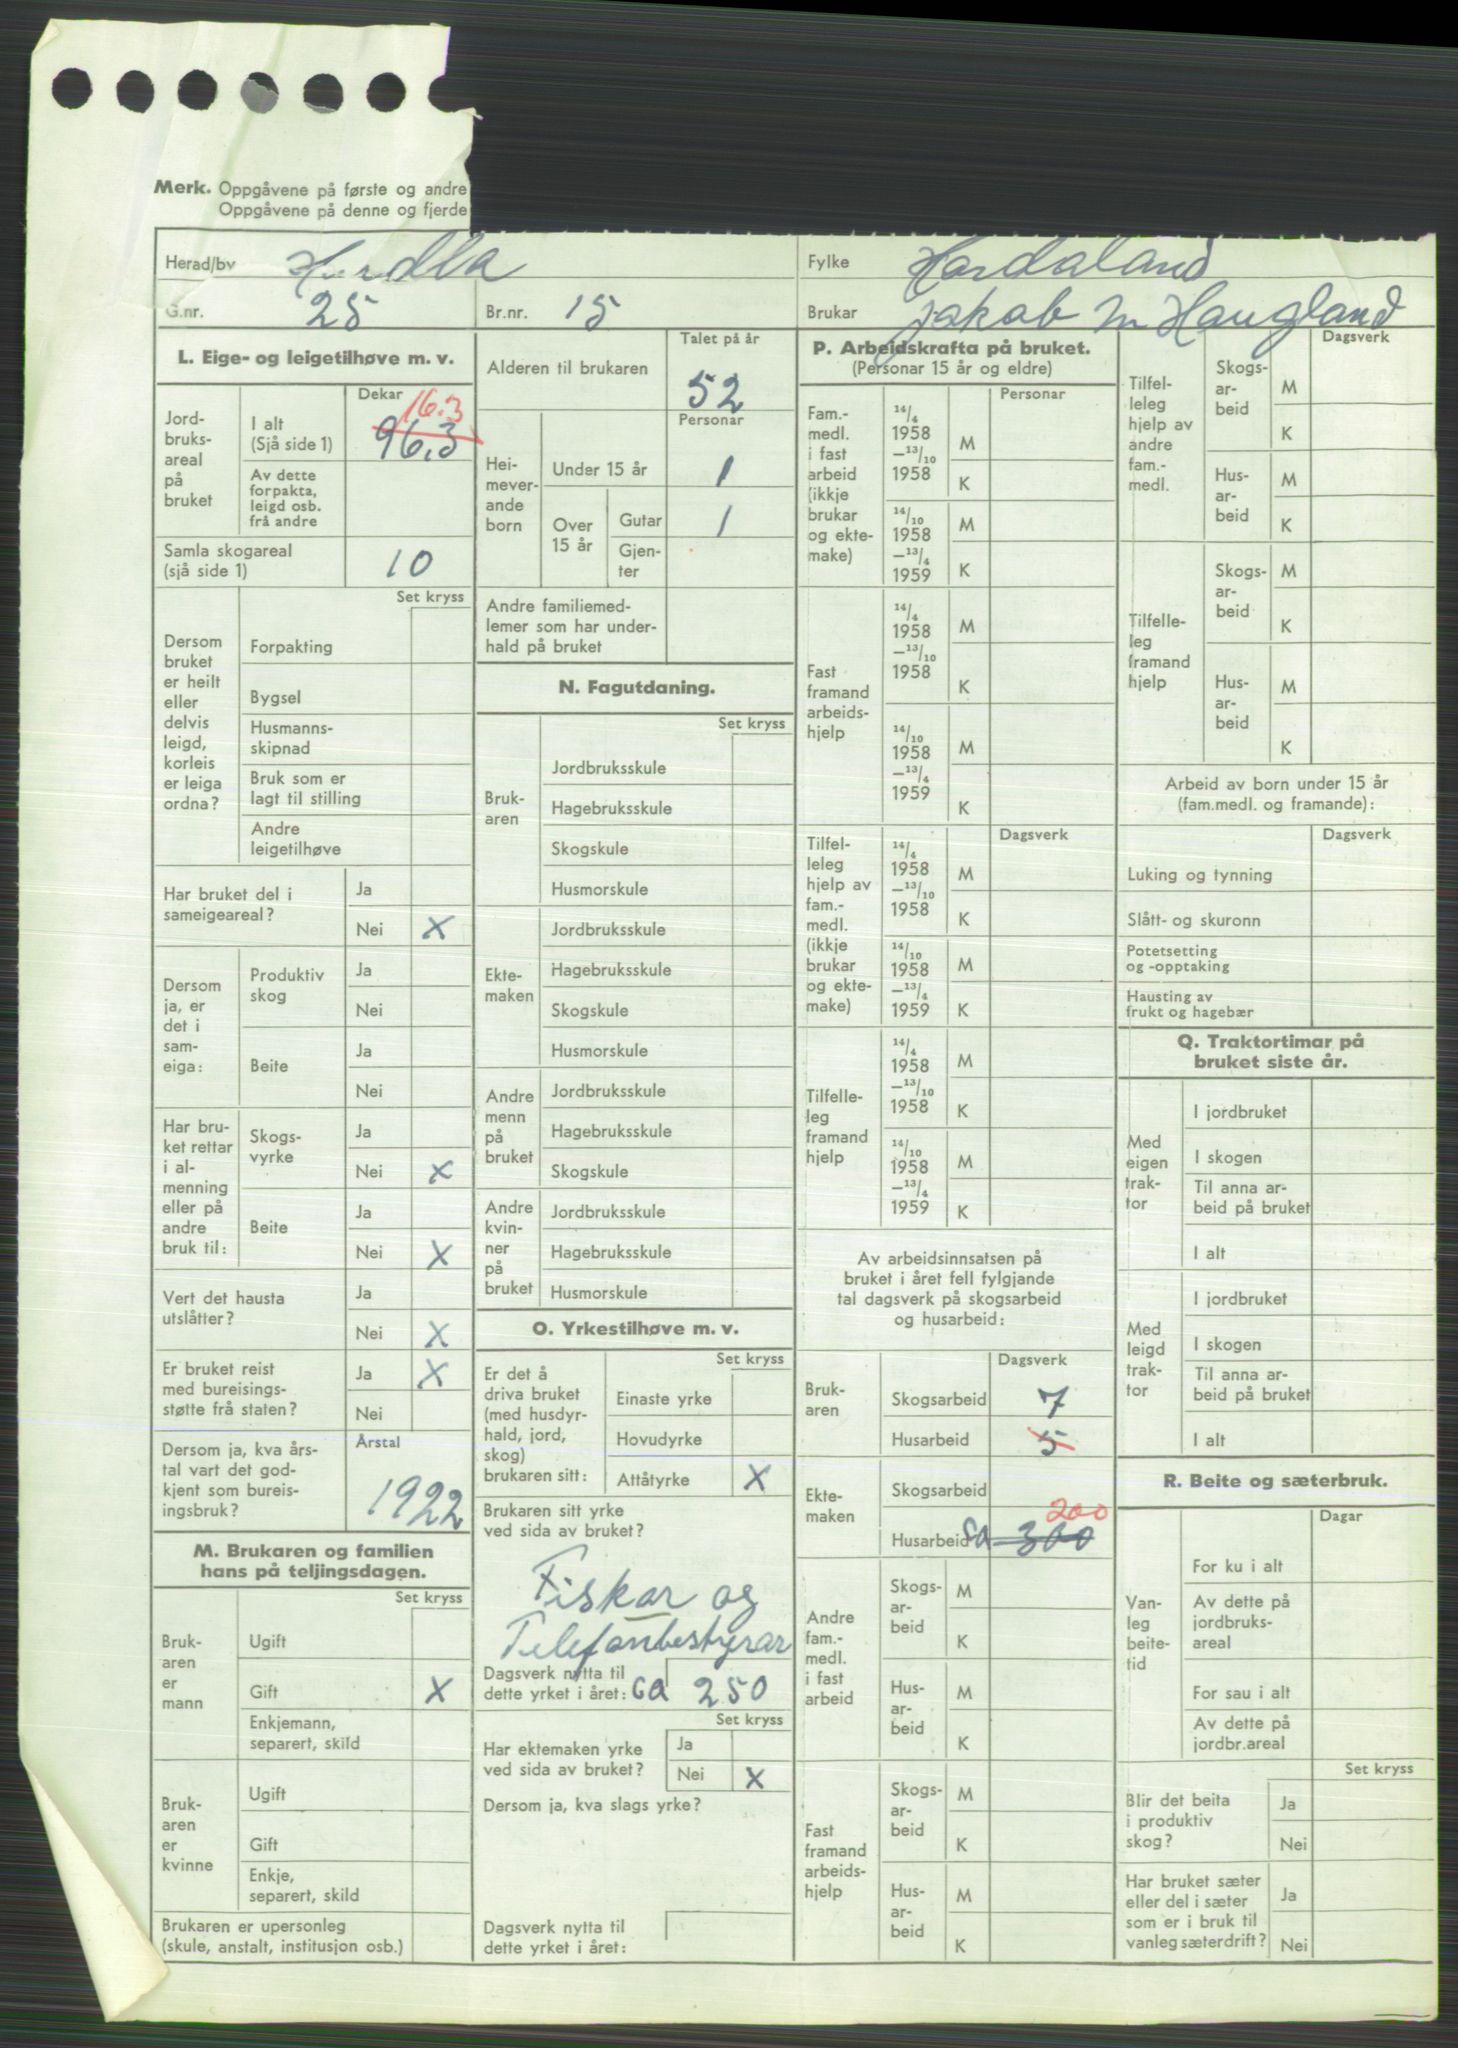 Merk. Oppgåvene på første og andre
Oppgåvene på denne og fjerde
Herad/bv Herdla
Fylke Hordaland
G.nr. 25 Br.nr. 15
Brukar Jakob M Haugland
L. Eige- og leigetilhøve m. v.
Dekar
Jord-
bruks-
areal
på
bruket
I alt
(Sjå side 1)
16.3
96.3
Av dette
forpakta,
leigd osb.
frå andre
Samla skogareal
(sjå side 1)
10
Set kryss
Dersom
bruket
er heilt
eller
delvis
leigd,
korleis
er leiga
ordna?
Forpakting
Bygsel
Husmanns-
skipnad
Bruk som er
lagt til stilling
Andre
leigetilhøve
Har bruket del i
sameigeareal?
Ja
Nei X
Dersom
ja, er
det i
sam-
eiga:
Produktiv
skog
Ja
Nei
Beite
Ja
Nei
Har bru-
ket rettar
i al-
menning
eller på
andre
bruk til:
Skogs-
vyrke
Ja
Nei X
Beite
Ja
Nei X
Vert det hausta
utslåtter?
Ja
Nei X
Er bruket reist
med bureisings-
støtte frå staten?
Ja X
Nei
Dersom ja, kva års-
tal vart det god-
kjent som bureis-
ingsbruk?
Årstal
1922
M. Brukaren og familien
hans på teljingsdagen.
Set kryss
Bruk-
aren
er
mann
Ugift
Gift X
Enkjemann,
separert, skild
Bruk-
aren
er
kvinne
Ugift
Gift
Enkje,
separert, skild
Brukaren er upersonleg
(skule, anstalt, institusjon osb.)
Talet på år
Alderen til brukaren 52
Personar
Hei-
mever-
ande
born
Under 15 år 1
Over
15 år
Gutar 1
Gjen-
ter
Andre familiemed-
lemer som har under-
hald på bruket
N. Fagutdaning.
Set kryss
Bruk-
aren
Jordbruksskule
Hagebruksskule
Skogskule
Husmorskule
Ekte-
maken
Jordbruksskule
Hagebruksskule
Skogskule
Husmorskule
Andre
menn
på
bruket
Jordbruksskule
Hagebruksskule
Skogskule
Andre
kvin-
ner
på
bruket
Jordbruksskule
Hagebruksskule
Husmorskule
O. Yrkestilhøve m. v.
Set kryss
Er det å
driva bruket
(med husdyr-
hald, jord,
skog)
brukaren sitt:
Einaste yrke
Hovudyrke
Attåtyrke X
Brukaren sitt yrke
ved sida av bruket?
Fiskar og
Telefonbestyrar
Dagsverk nytta til
dette yrket i året: ca 250
Set kryss
Har ektemaken yrke
ved sida av bruket?
Ja
Nei X
Dersom ja, kva slags yrke?
Dagsverk nytta til
dette yrket i året:
P. Arbeidskrafta på bruket.
(Personar 15 år og eldre)
Personar
Fam.-
medl.
i fast
arbeid
(ikkje
brukar
og ekte-
make)
14/4
1958
—13/10
1958
M
K
14/10
1958
—13/4
1959
M
K
Fast
framand
arbeids-
hjelp
14/4
1958
—13/10
1958
M
K
14/10
1958
—13/4
1959
M
K
Dagsverk
Tilfel-
leleg
hjelp av
fam.-
medl.
(ikkje
brukar
og ekte-
make)
14/4
1958
—13/10
1958
M
K
14/10
1958
—13/4
1959
M
K
Tilfelle-
leg
framand
hjelp
14/4
1958
—13/10
1958
M
K
14/10
1958
—13/4
1959
M
K
Av arbeidsinnsatsen på
bruket i året fell fylgjande
tal dagsverk på skogsarbeid
og husarbeid:
Dagsverk
Bruk-
aren
Skogsarbeid 7
Husarbeid 5
Ekte-
maken
Skogsarbeid
200
Husarbeid ca 300
Andre
fam.-
medl.
i fast
arbeid
Skogs-
ar-
beid
M
K
Hus-
ar-
beid
M
K
Fast
framand
arbeids-
hjelp
Skogs-
ar-
beid
M
K
Hus-
ar-
beid
M
K
Dagsverk
Tilfel-
leleg
hjelp av
andre
fam.-
medl.
Skogs-
ar-
beid
M
K
Hus-
ar-
beid
M
K
Tilfelle-
leg
framand
hjelp
Skogs-
ar-
beid
M
K
Hus-
ar-
beid
M
K
Arbeid av born under 15 år
(fam.medl. og framande):
Dagsverk
Luking og tynning
Slått- og skuronn
Potetsetting
og -opptaking
Hausting av
frukt og hagebær
Q. Traktortimar på
bruket siste år.
Med
eigen
trak-
tor
I jordbruket
I skogen
Til anna ar-
beid på bruket
I alt
Med
leigd
trak-
tor
I jordbruket
I skogen
Til anna ar-
beid på bruket
I alt
R. Beite og sæterbruk.
Dagar
Van-
leg
beite-
tid
For ku i alt
Av dette på
jordbruks-
areal
For sau i alt
Av dette på
jordbr.areal
Set kryss
Blir det beita
i produktiv
skog?
Ja
Nei
Har bruket sæter
eller del i sæter
som er i bruk til
vanleg sæterdrift?
Ja
Nei